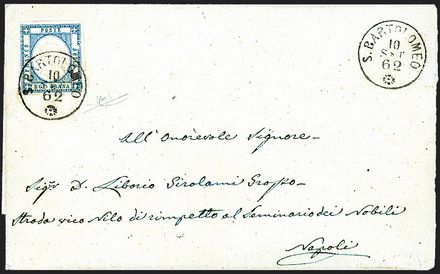 POSTE
DUE GRANA
S. BARTOLOMEO
10
62
S. BARTOLOMEO
10
SET
62
All' Onorevole Signore
Sigr D. Liborio Girolami Grosso
Strada vico Nilo di rimpetto al Seminario dei Nobili
Napoli